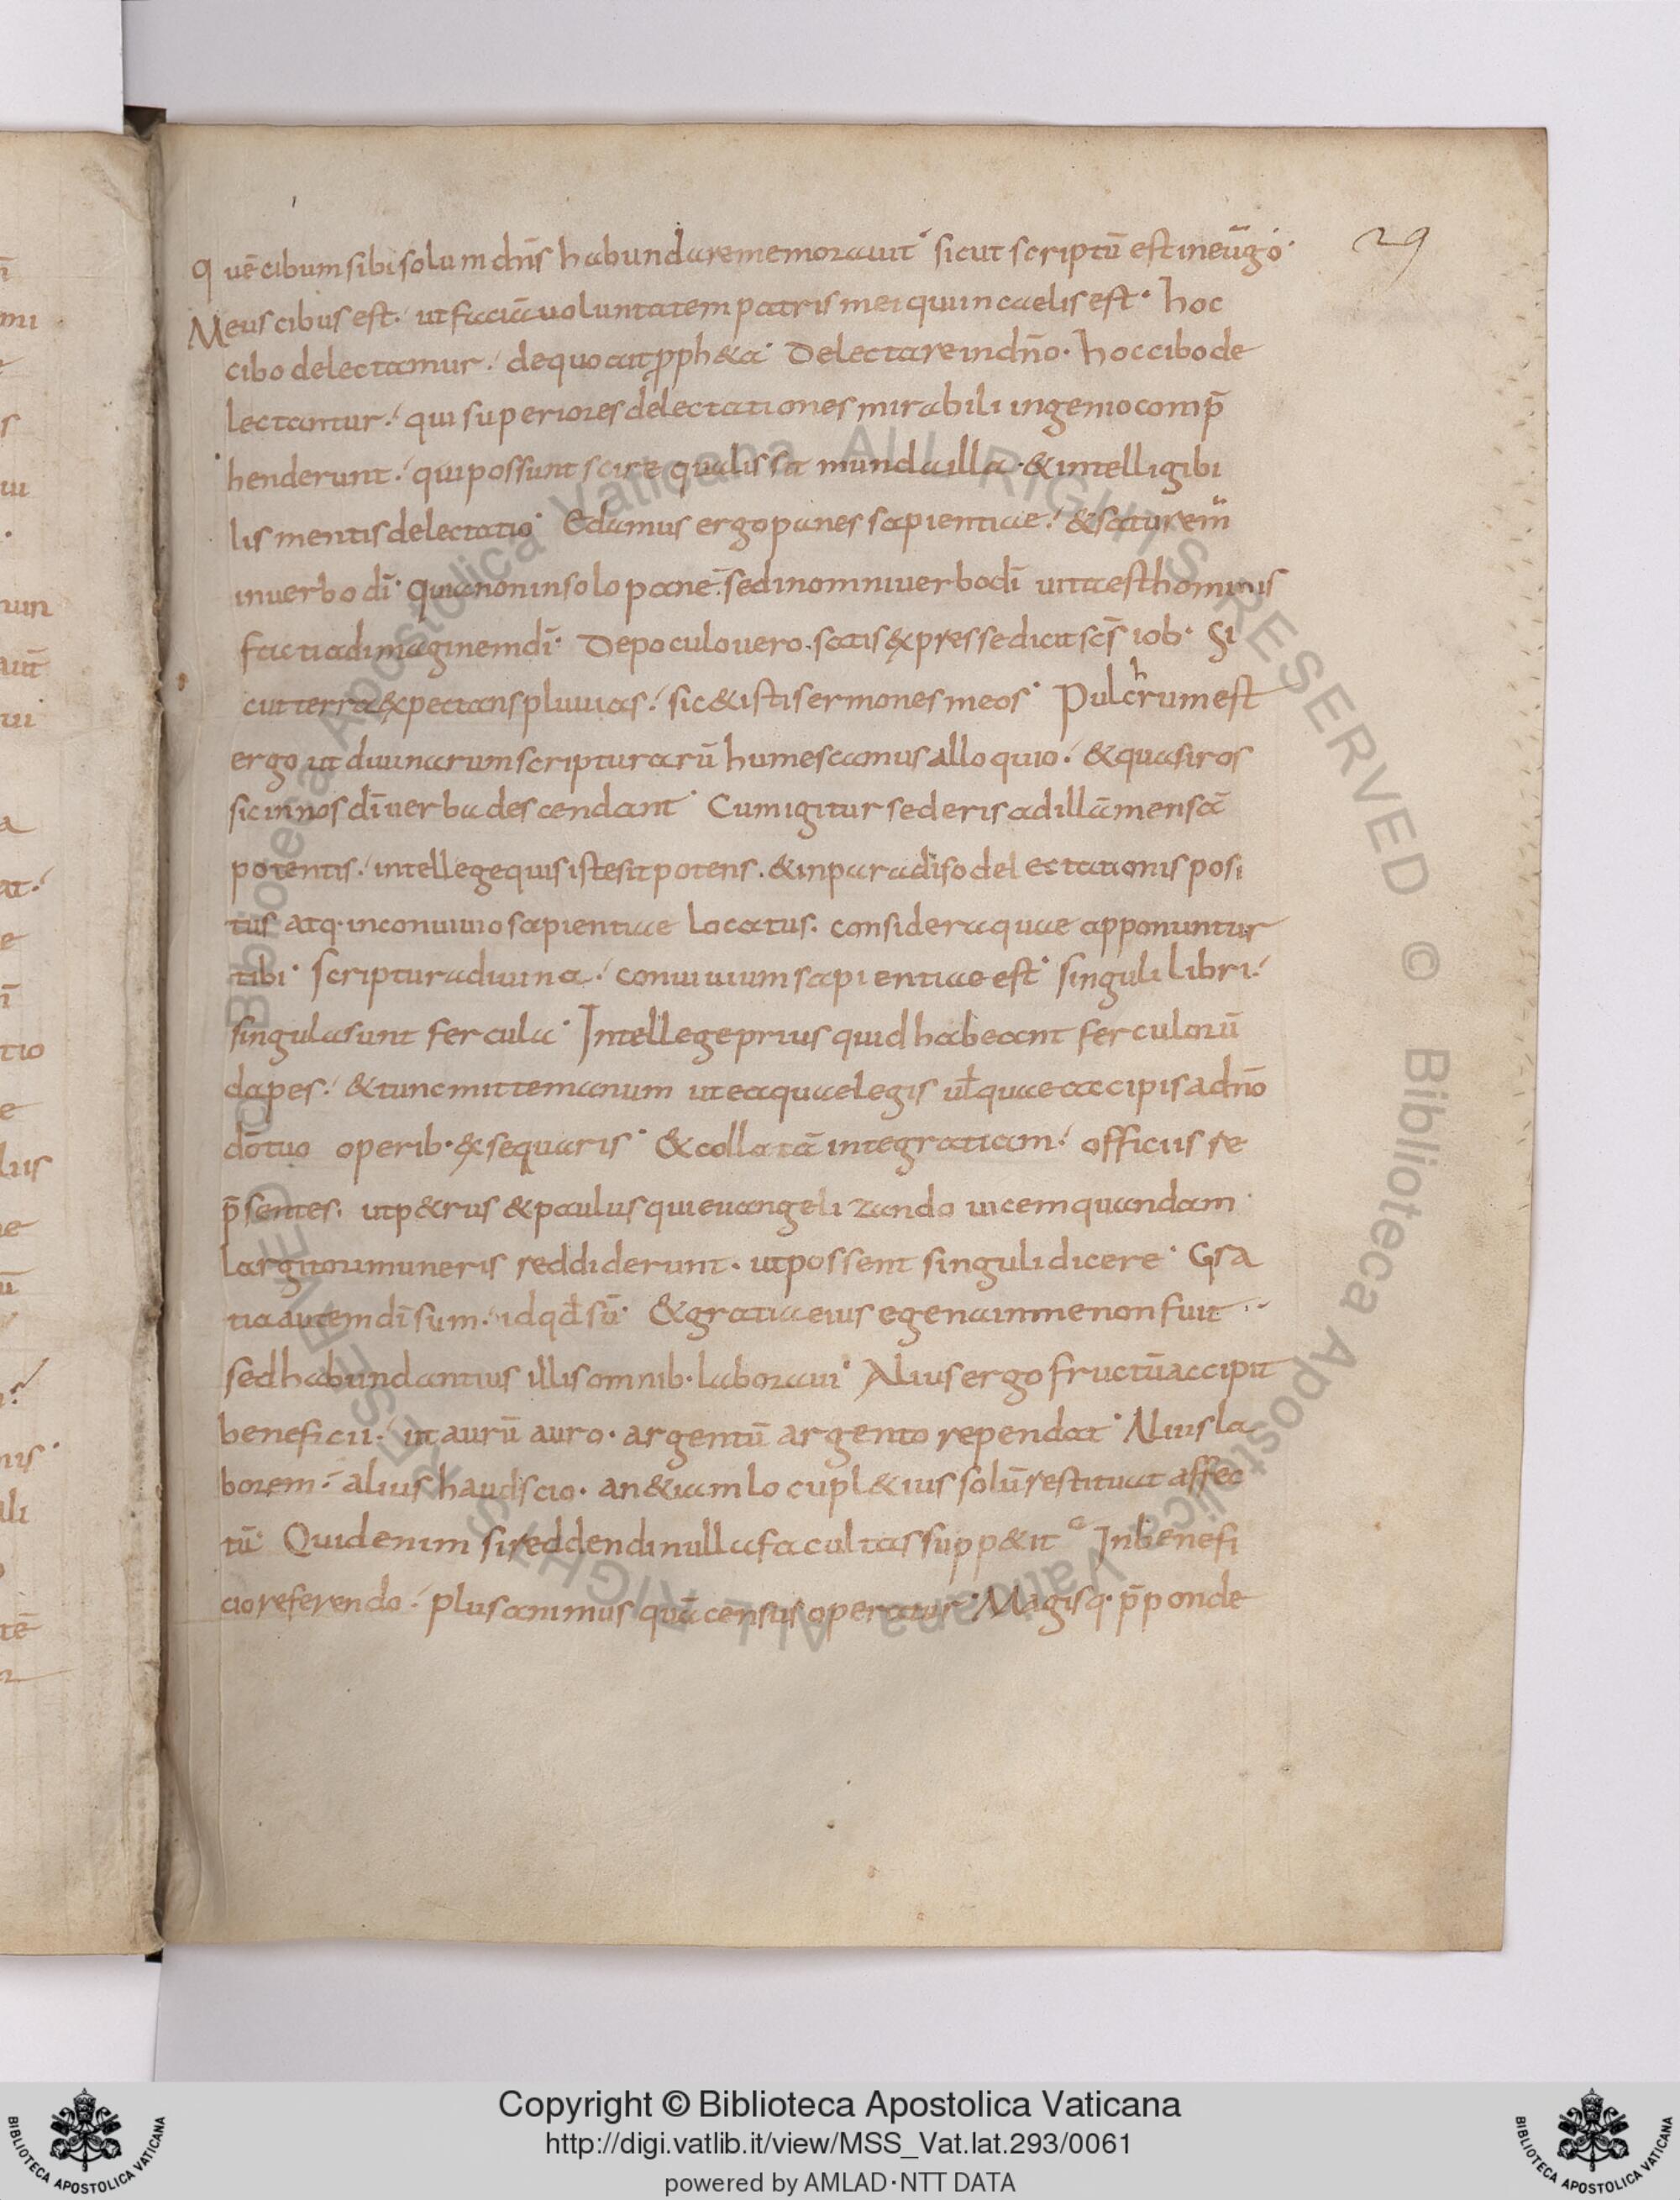 29
quē cibum sibi solum dn̄s habundare memorauit· sicut scriptū est in eūgo·
Meus cibus est· ut faciā uoluntatem patris mei qui in caelis est· hoc
cibo delectamur· de quo ait ꝓph&a· Delectare in dn̄o· hoc cibo de
lectantur· qui superiores delectationes mirabili ingenio comp̄
henderunt· qui possunt scire qualis sit munda illa· & intelligibi
lis mentis delectatio· Edamus ergo panes sapientiae· & saturem̄
in uerbo dī· quia non in solo pane· sed in omni uerbo dī uita est hominis
facti ad imaginem dī· De poculo uero· satis expresse dicit sc̄s iob· Si
cut terra expectans pluuias· sic & isti sermones meos· Pulchrum est
ergo ut diuinarum scripturarū humescamus alloquio· & quasi ros
sic in nos dī uerba descendant· Cum igitur sederis ad illā mensā
potentis· intellege quis iste sit potens· & in paradiso delectationis posi
tus atq· in conuiuio sapientiae locatus· considera quae apponuntur
tibi· scriptura diuina· conuiuium sapientiae est· singuli libri·
singula sunt fercula· Intellege prius quid habeant ferculorū
dapes· & tunc mitte manum ut ea quae legis ul̄ quae accipis a dn̄o
dō tuo operib· exsequaris· & collatā in te gratiam· officiis re
p̄sentes· ut p&rus & paulus qui euangelizando uicem quandam
largitori muneris reddiderunt· ut possent singuli dicere· Gra
tia autem dī sum· id qd̄ sū· & gratia eius egena in me non fuit·
sed habundantius illis omnib· laboraui· Alius ergo fructū accipit
beneficii· ut aurū auro· argentū argento rependat· Alius la
borem· alius haud scio· an &iam locupl&ius solū restituat affec
tū· Quid enim si reddendi nulla facultas supp&it In benefi
cio referendo· plus animus quā census operatur· Magisq· p̄ponde
Copyright © Biblioteca Apostolica Vaticana
http://digi.vatlib.it/view/MSS_Vat.lat.293/0061
powered by AMLAD·NTT DATA
BIBLIOTECA APOSTOLICA VATICANA
BIBLIOTECA APOSTOLICA VATICANA